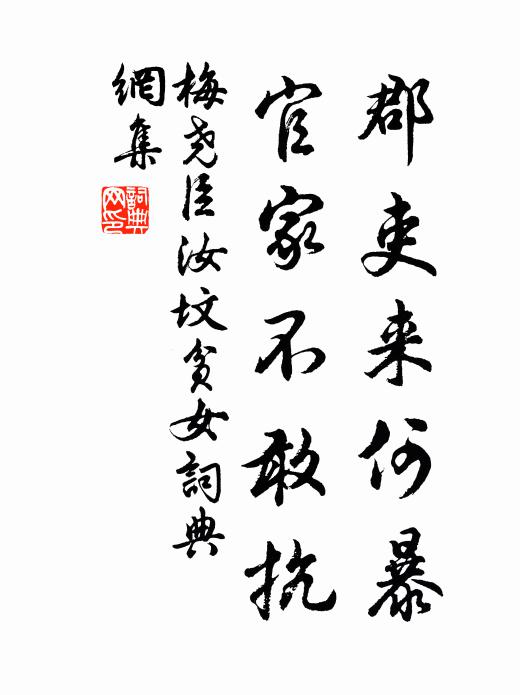 郡吏来何暴
官家不敢抗
梅尧臣汝坟贫女詞典
網集
詞典
网印